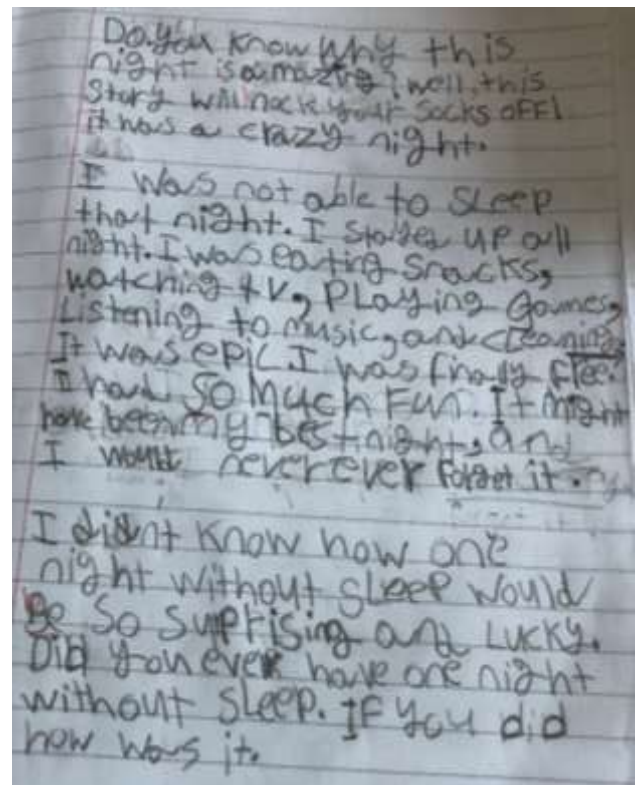 Do you know why this
night is amazing? well, this
story will nock your socks off!
it was a crazy night.
I was not able to sleep
that night. I stayed up all
night. I was eating snacks,
watching tv, playing games,
Listening to music, and cleaning.
It was epic I was finally free.
I had so much fun. It might
have been my best night, and
I would never ever forget it.
I didnt know how one
night without sleep would
Be so suprising and Lucky.
Did you ever have one night
without sleep. If you did
how was it.